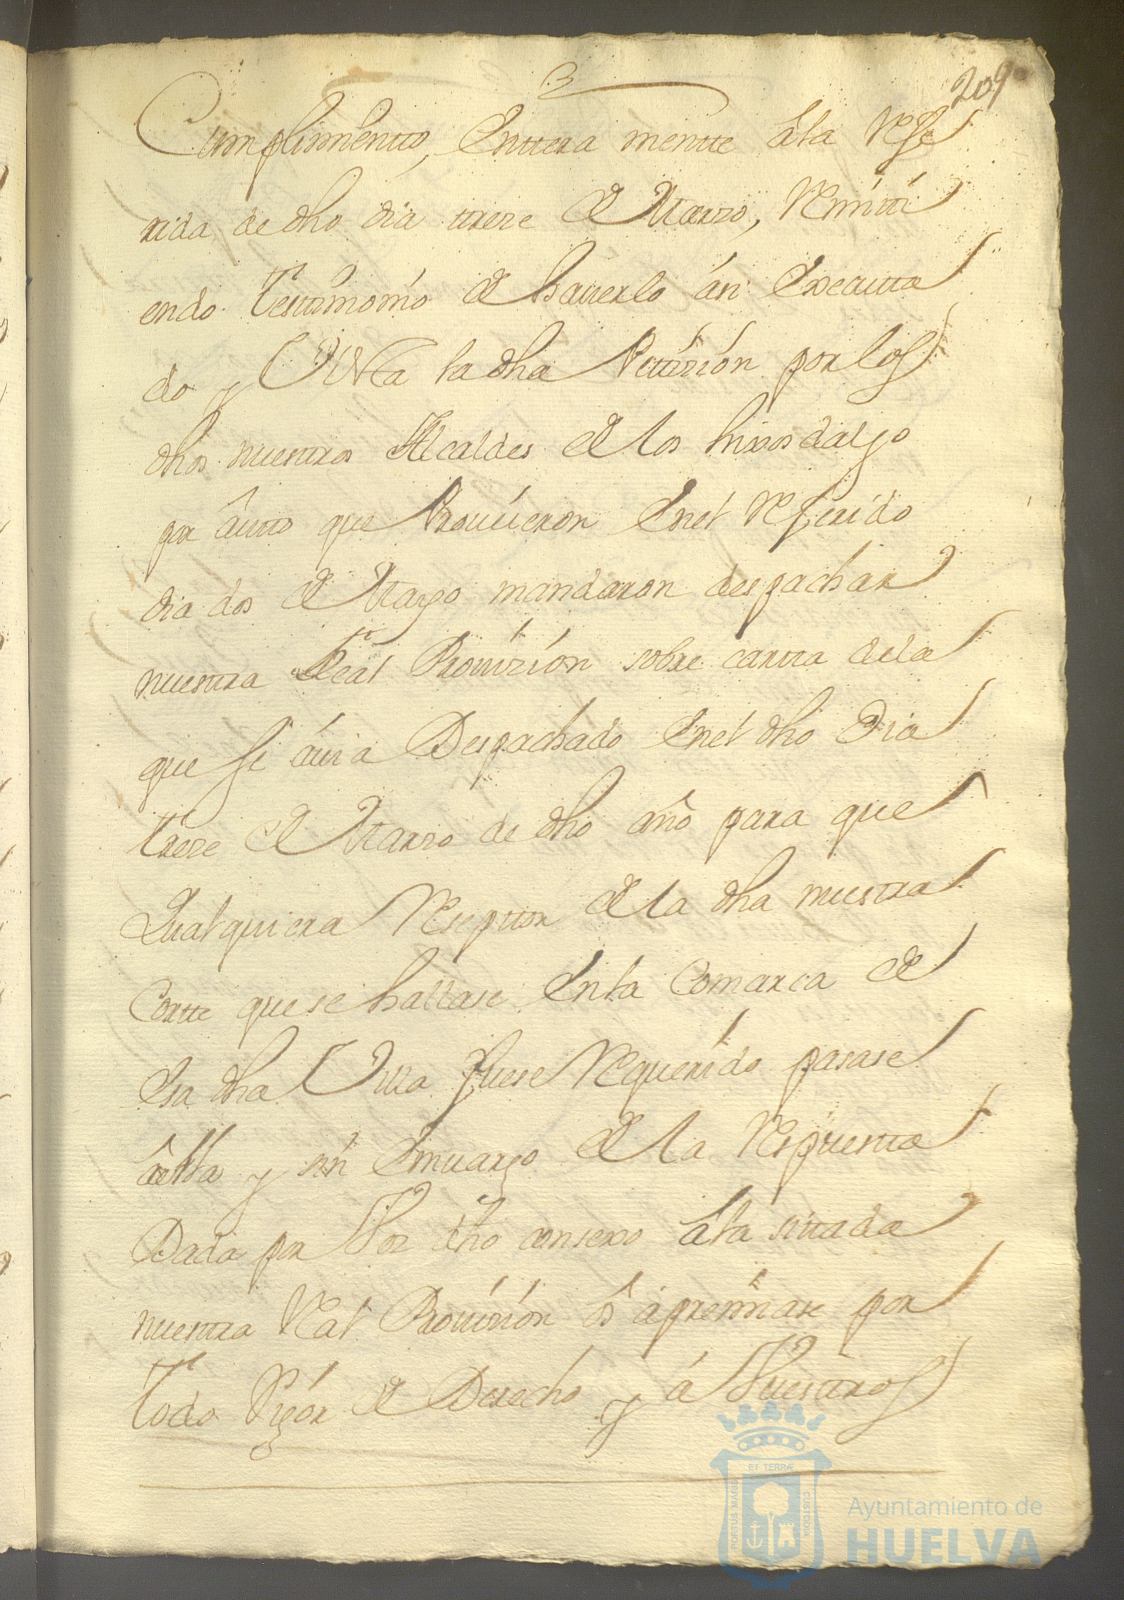 3
209
Cumplimientto, Entteramentte âla Refe
rida de dho dia treze de Marzo, Remiti
endo testtimonio de haverlo asi Executta
do y Vista la dha Pettizion por los
dhos nuestros Alcaldes de los hixosdalgo
por âutto que Proueieron Enel Referido
dia dos de Mayo mandaron despachar
nuestra Real Provizion sobre cartta dela
que se âuia Despachado Enel dho Dia
treze de Marzo de dho año para que
Qualquiera Reseptor de la dha nuestra
Cortte que se hallase Enla Comarca de
Esa dha Villa fuese Requerido pasase
âella y sin Envargo de la Respuesta
Dada por Vos dho consexo âla sittada
nuestra Real Provizion os apremiase por
todo Rigor de Derecho y â Vuestros
PORTUS MARIS
ET TERRÆ
CUSTODIA
Ayuntamiento de
HUELVA